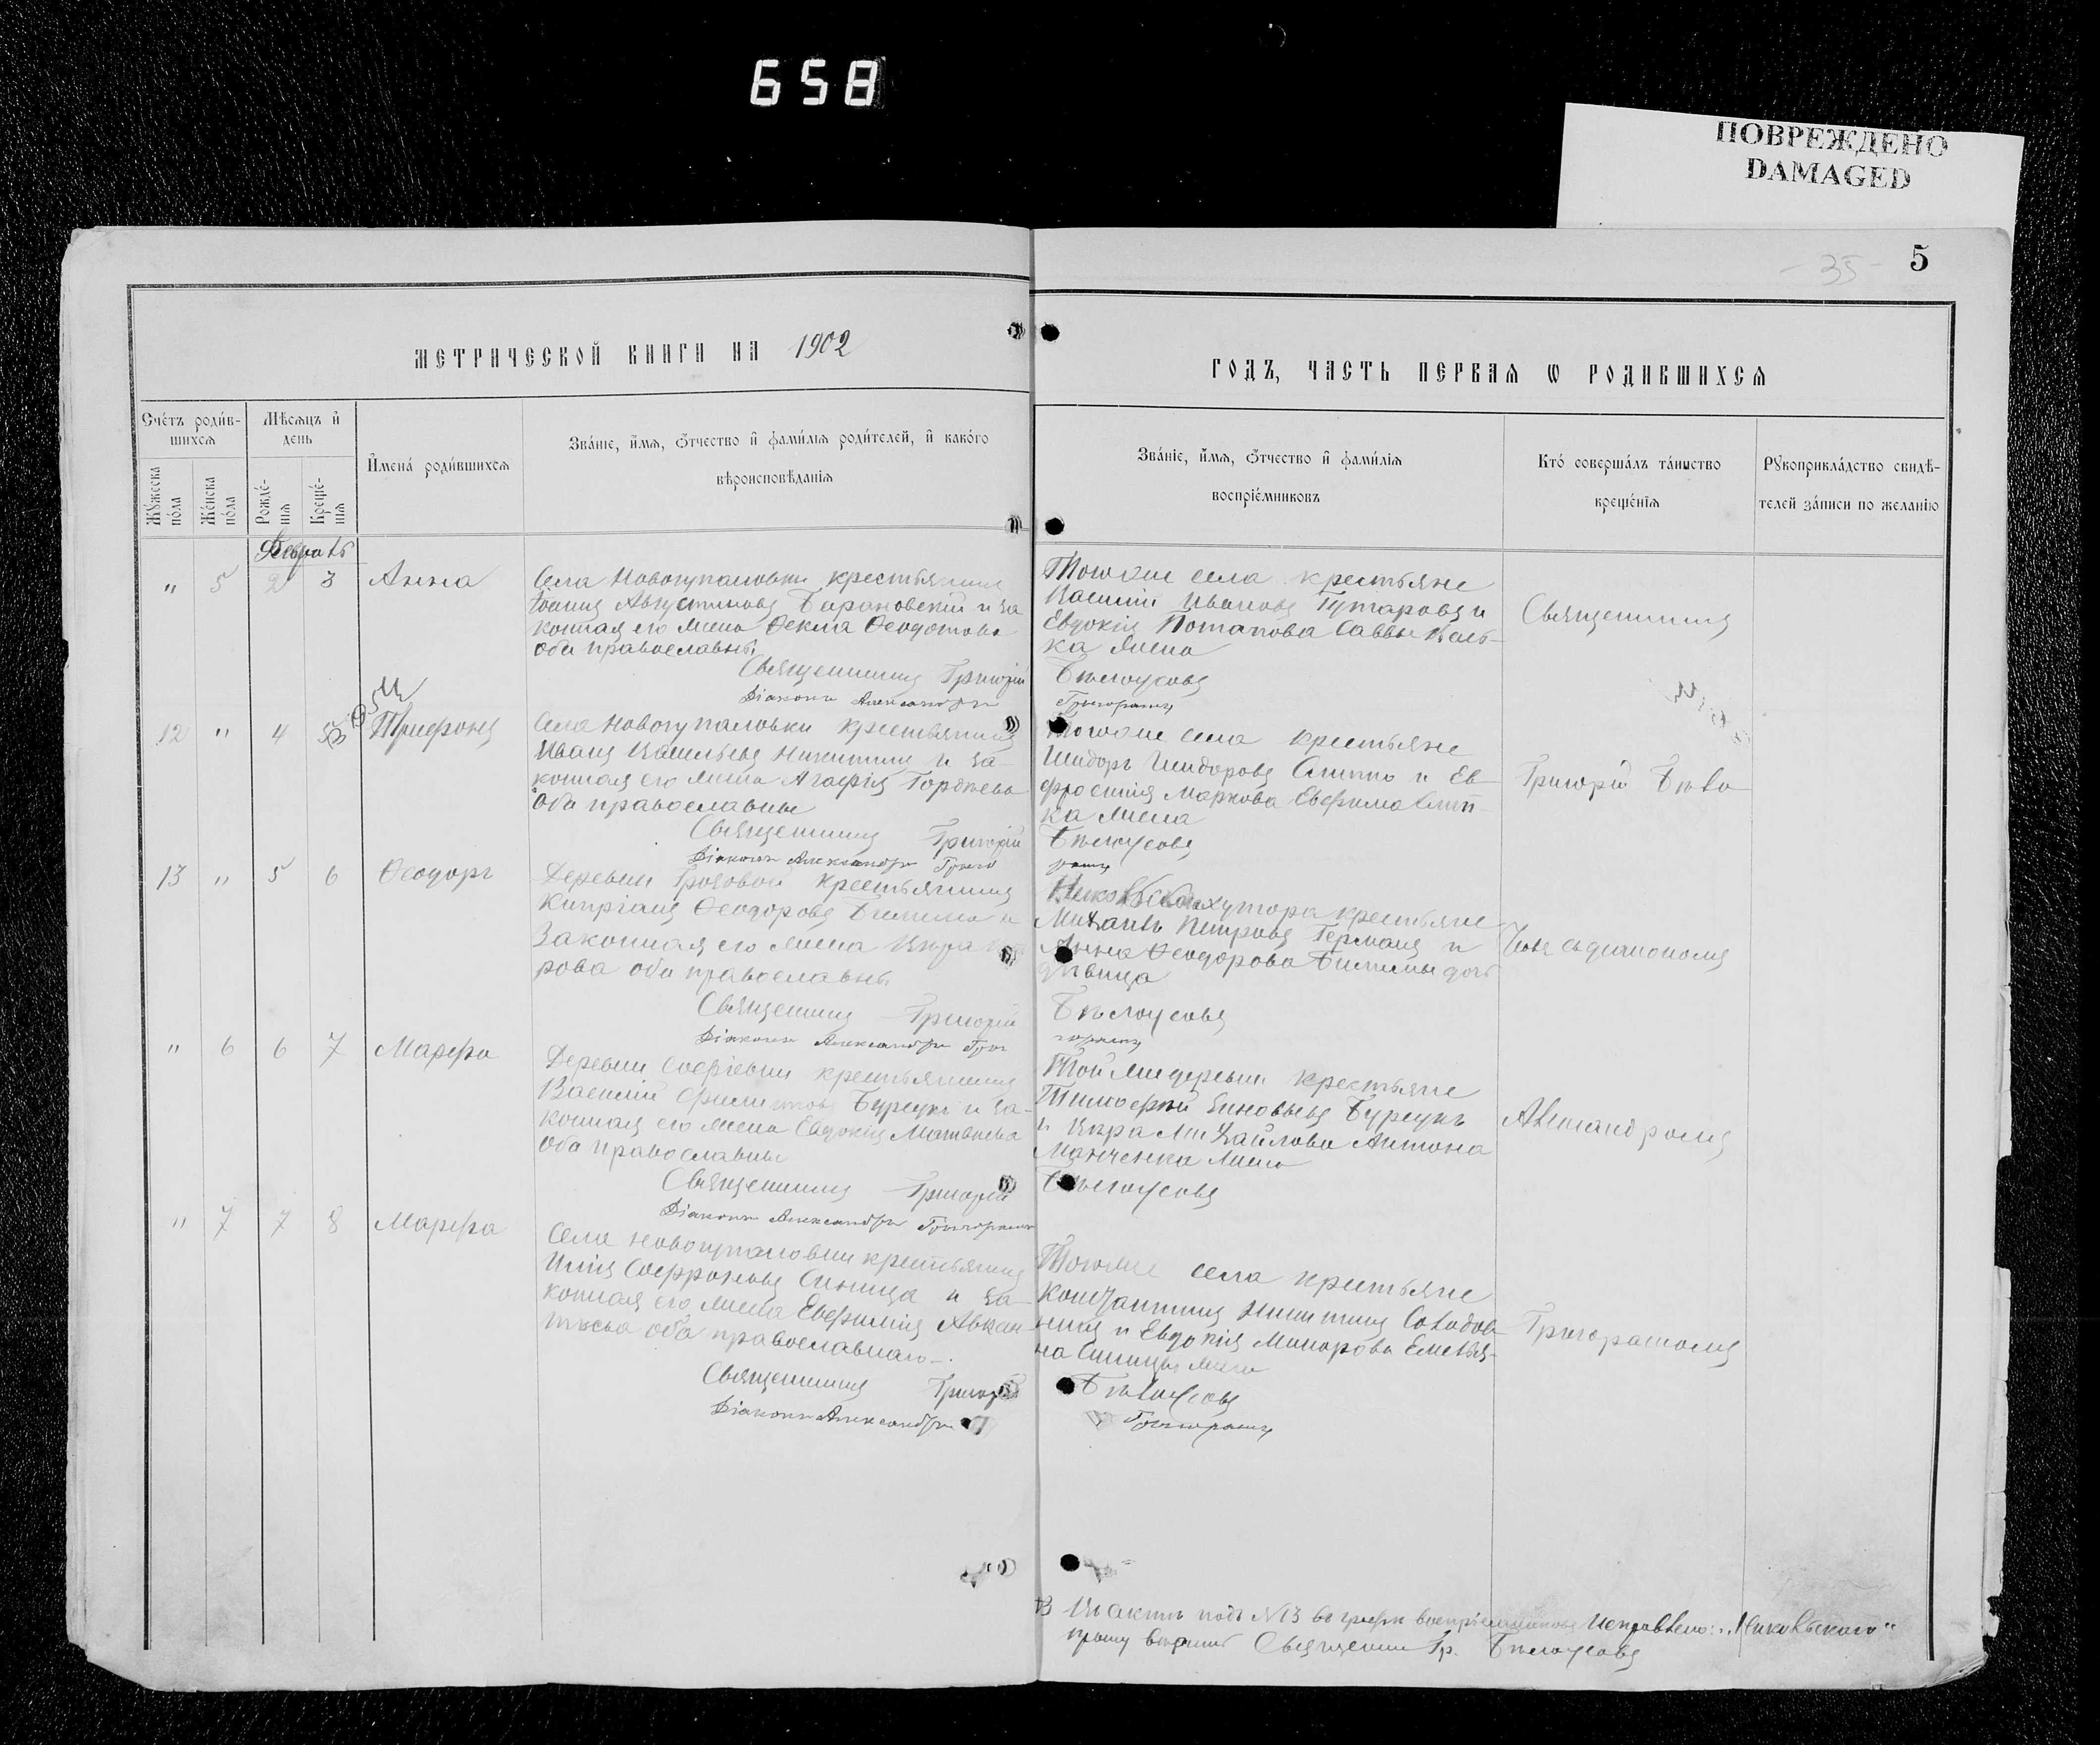 658
ПОВРЕЖДЕНО
DAMAGED
- 35 -
5
МЕТРИЧЕСКОЙ КНИГИ НА 1902
ГОДЪ, ЧАСТЬ ПЕРВАЯ Ѡ РОДИВШИХСЯ
Счéтъ роди́в-
шихся
Мѣсяцъ и҆
день
Мꙋ́жеска
по́ла
Же́нска
по́ла
Рожде́-
нїя
Креще́-
нїя
И҆мена́ роди́вшихся
Зва́нїе, и҆́мя, ѻ҆́тчество и҆ фами́лїя роди́телей, и҆ како́го
вѣроисповѣ́данїя
Зва́нїе, и҆́мя, ѻ҆́тчество и҆ фами́лїя
воспрїе́мниковъ
Кто̀ соверша́лъ та́инство
креще́нїя
Рꙋкоприкла́дство свидѣ́-
телей за́писи по жела́нїю
Февраль
" 5 2 3 Анна
Села Новогупаловки крестьянинъ
Іоаннъ Августиновъ Барановскій и за
конная его жена Ѳекла Ѳеодотова
оба православны
Священникъ Григорій
Діаконъ Александръ
Тогоже села крестьяне
Василій Ивановъ Гутаровъ и
Евдокія Потапова Саввы
ка жена
Бѣлоусовъ
Григорашъ
Священникъ
12 " 4 5 Трифонъ
Села Новогупаловки крестьянинъ
Иванъ Васильевъ Никитинъ и за-
конная его жена Агафія Гордѣева
оба православные
Священникъ Григорій
Діаконъ Александръ Григо
Тогоже села крестьяне
Исидоръ Исидоровъ и Ев-
фросинія Маркова Евфима
ка жена
Бѣлоусовъ
рашъ
Григорій Бѣло
13 " 5 6 Ѳеодоръ
Деревни Грозовой крестьянинъ
Кипріанъ Ѳеодоровъ и
законная его жена Вѣра
рова оба православны
Священникъ Григорій
Діаконъ Александръ Григ
хутора крестьяне
Михаилъ Петровъ Германъ и
Анна Ѳеодорова дочь
дѣвица
Бѣлоусовъ
горашъ
усовъ съ діакономъ
" 6 6 7 Марфа
Деревни Софіевки крестьянинъ
Василій Филиповъ Бурцукъ и за-
конная его жена Евдокія Матвѣева
оба православные
Священникъ Григорій
Діаконъ Александръ Григорашъ
Той же деревни крестьяне
Тимофей Зиновьевъ Бурцукъ
и Вѣра Михайлова Антона
Манченка жена
Бѣлоусовъ
Александромъ
" 7 7 8 Марфа
Села Новогупаловки крестьянинъ
Илія Софроновъ Синица и за-
конная его жена Евфимія
оба православнаго.
Священникъ Григорій
Діаконъ Александръ
Тогоже села крестьяне
Константинъ Никитинъ
и Евдокія
на Синицы жена
Бѣлоусовъ
Григорашъ
Григорашомъ
Въ актѣ подъ №13 въ графѣ воспріемниковъ исправлено: „
вѣрить Священникъ Гр. Бѣлоусовъ